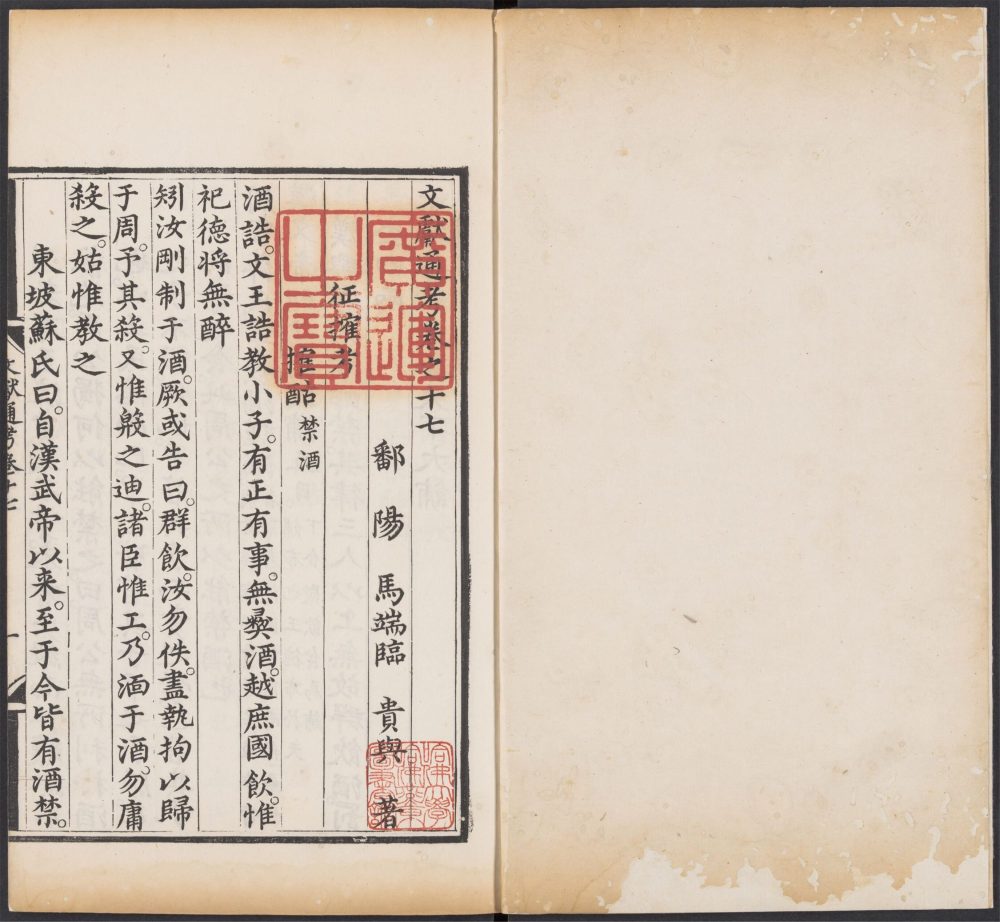 文獻通考卷之十七
鄱陽馬端臨貴與著
征搉考
搉酤禁酒
酒誥。文王誥教小子。有正有事。無彝酒。越庶國飲惟
祀德将無醉
矧汝剛制于酒。厥或告曰。群飲。汝勿佚。盡執拘以歸
于周。予其殺。又惟殷之迪。諸臣惟工。乃湎于酒。勿庸
殺之。姑惟教之
東坡蘇氏曰。自漢武帝以来。至于今皆有酒禁。
文獻通考卷十七
一